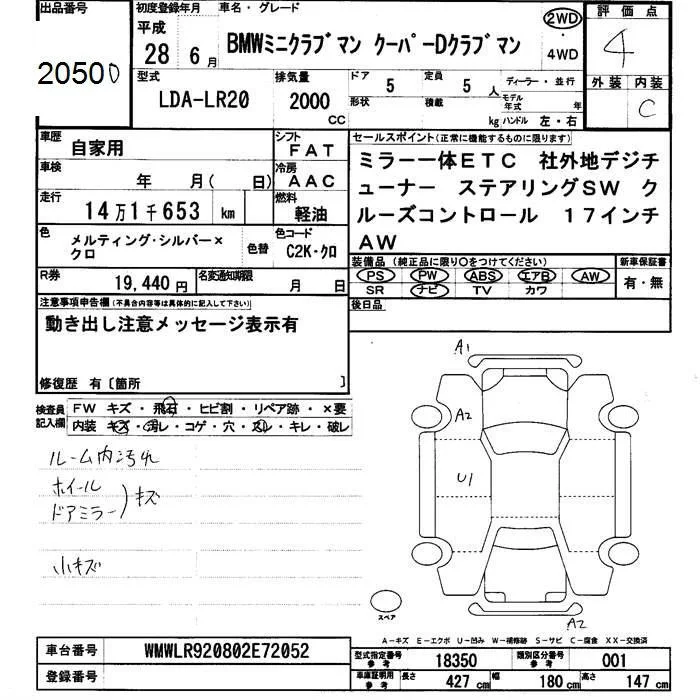 出品番号
20500
初度登録年月
平成
28 6 月
車名・グレード
BMWミニクラブマン クーパーDクラブマン
2WD
・
4WD
評価点
4
外装 内装
C
型式
LDA-LR20
排気量
2000
CC
ドア
5
定員
5 人
形状
積載
kg
ディーラー・並行
モデル年式 年
ハンドル 左・右
車歴
自家用
シフト
FAT
車検
年 月( 日)
冷房
AAC
走行
14万1千653 km
燃料
軽油
色
メルティング・シルバー×
クロ
色替
色コード
C2K-クロ
R券
19,440円
名変通知期限
月 日
セールスポイント(正常に機能するものに限ります)
ミラー一体ETC 社外地デジチ
ューナー ステアリングSW ク
ルーズコントロール 17インチ
AW
装備品(純正品に限り○をつけてください)
PS PW ABS エアB AW
SR ナビ TV カワ
新車保証書
有・無
後日品
注意事項申告欄(不具合内容等は具体的に記入して下さい)
動き出し注意メッセージ表示有
修復歴 有〔箇所 〕
検査員
記入欄
FW キズ・飛石・ヒビ割・リペア跡・×要
内装 キズ・汚レ・コゲ・穴・スレ・キレ・破レ
ルーム内汚れ
ホイール
ドアミラー)キズ
小キズ
A1
A2
U1
スペア
A2
A-キズ E-エクボ U-凹み W-補修跡 S-サビ C-腐食 XX-交換済
車台番号
WMWLR920802E72052
登録番号
型式指定番号
参考
18350
類別区分番号
参考
001
車庫証明用
参考
長さ 427 cm 幅 180 cm 高さ 147 cm